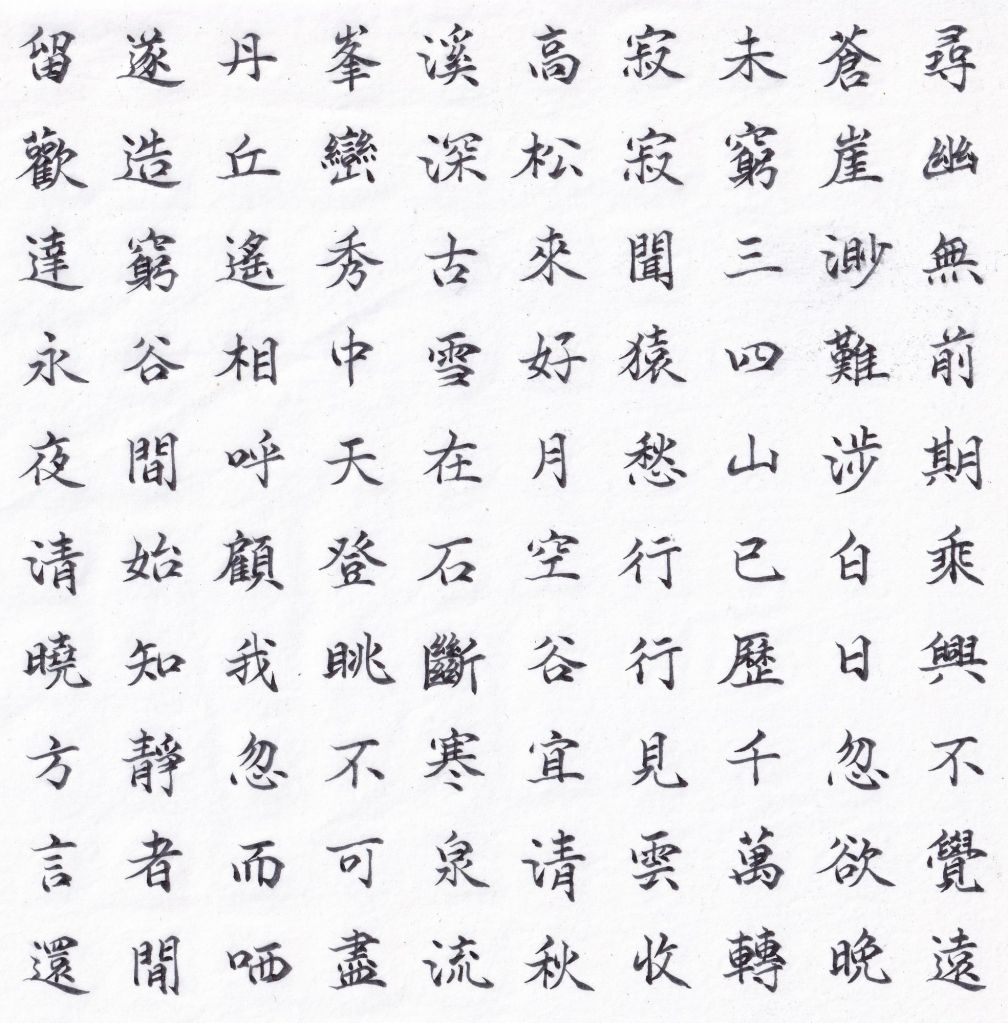 尋幽無前期乘興不覺遠
蒼崖渺難涉白日忽欲晚
未窮三四山已歷千萬轉
寂寂聞猿愁行行見雲收
高松來好月空谷宜清秋
溪深古雪在石斷寒泉流
峯巒秀中天登眺不可盡
丹丘遙相呼顧我忽而哂
遂造窮谷間始知靜者閒
留歡達永夜清曉方言還